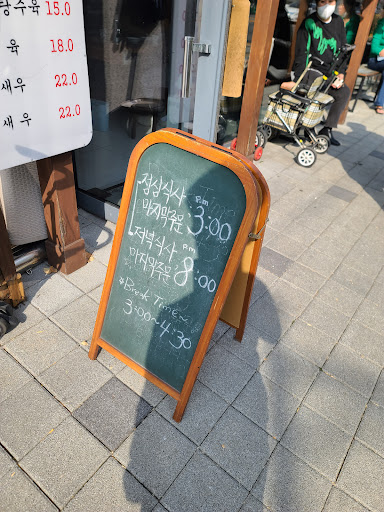 탕수육 15.0
육 18.0
새우 22.0
새우 22.0
점심식사
마지막주문 PM 3:00
저녁식사
마지막주문 PM 8:00
*Break Time~
3:00~4:30